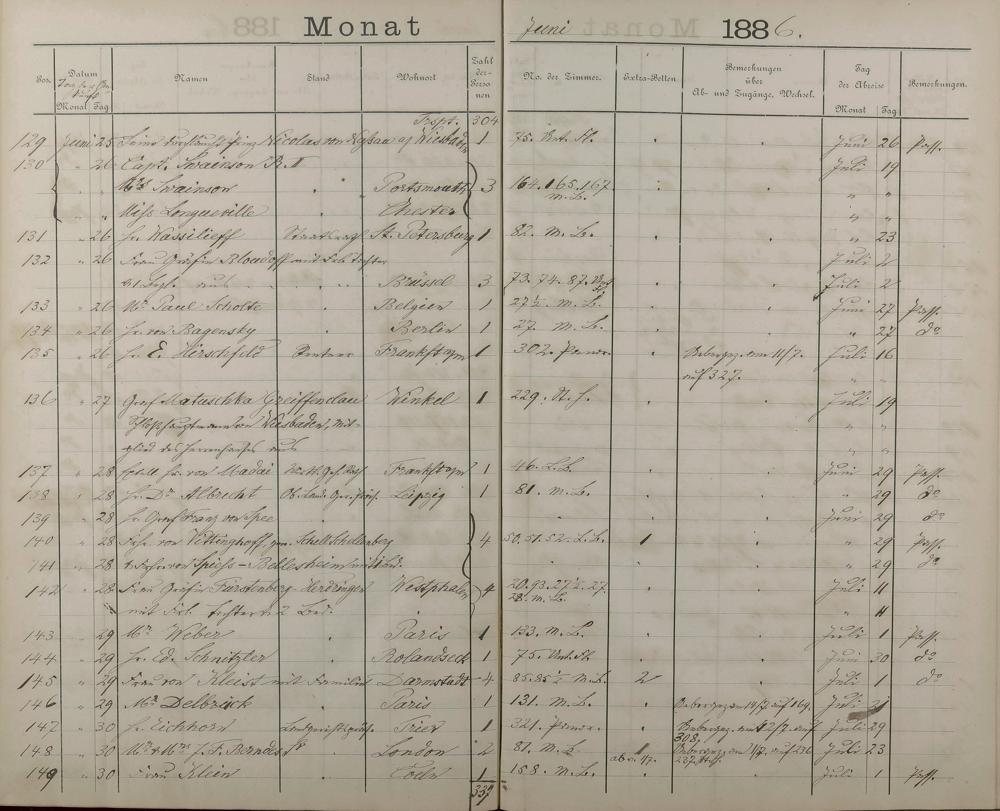 Monat Juni 1886.
Datum Zahl Tag
Namen Stand Wohnort der- No. der Zimmer. Extra-Betten Bemerkungen über der Abreise Bemerkungen.
Monat Tag Personen Ab- und Zugänge, Wechsel. Monat Tag
Trspt. 304
129 Juni 25 Seine Nicolas von Wiesbaden 1 75. Juni 26 Pass.
130 " 26 Capt. Swainson R. N Juli 19
Mrs Swainson Portsmouth 3 164. 165. 167 " "
" " Miss Longueville Chester m. L. " "
131 " 26 Hr. Wassilieff Staatsrath St. Petersburg 1 82. M. L. " 23
132 " 26 Frau Gräfin Bloudoff mit Tochter Juli 2
Brüssel 3 73. 74. 87. Juli 2
133 " 26 Mr. Paul Scholte Belgien 1 27½. M. L. Juni 27 Pass.
134 " 26 Hr. von Bagensky Berlin 1 27. M. L. " 27 do
135 " 26 Hr. E. Hirschfeld Rentner Frankft a/m 1 302. Uebergez. am 11/7. Juli 16
auf 327. " "
136 " 27 Graf Matuschka Greiffenclau Winkel 1 229. Juli 19
Schlosshauptmann von Wiesbaden, Mit- " "
glied des Herrenhauses "
137 " 28 Hr. von Madai Frankft a/m 1 46. L. L. Juni 29 Pass.
138 " 28 Hr. Dr Albrecht Leipzig 1 81. M. L. " 29 do
139 " 28 Hr. Graf Franz von Spee Juni 29 do
140 " 28 Frhr. von Vittinghoff, gen. Schell Schellenberg 4 50. 51. 52. L. L. 1 " 29 Pass.
141 " 28 von Spiess-Bullesheim mit Bed. " 29 do
142 " 28 Frau Gräfin Fürstenberg-Herdringen Westphalen 4 20. 93. 27½. 27. Juli 11
mit Tochter u. 2 Bed. 28. M. L. " 11
143 " 29 Mr. Weber Paris 1 133. M. L. Juli 1 Pass.
144 " 29 Hr. Ed. Schnitzler Rolandseck 1 75. Juni 30 do
145 " 29 Frau von Kleist mit Familie Darmstadt 4 85. 85½. M. L. 2 Juli 1 do
146 " 29 Mr. Delbrück Paris 1 131. M. L. auf 164. Juli 21
147 " 30 Hr. Eichhorn Trier 1 321. Uebergez. auf 308. Juli 29
148 " 30 Mr. & Mrs J. F. London 2 81. M. L. 1 Uebergez. auf 236 Juli 23
ab 1/7. 237.
149 " 30 Frau Klein Cöln 1 158. M. L. Juli 1 Pass.
337